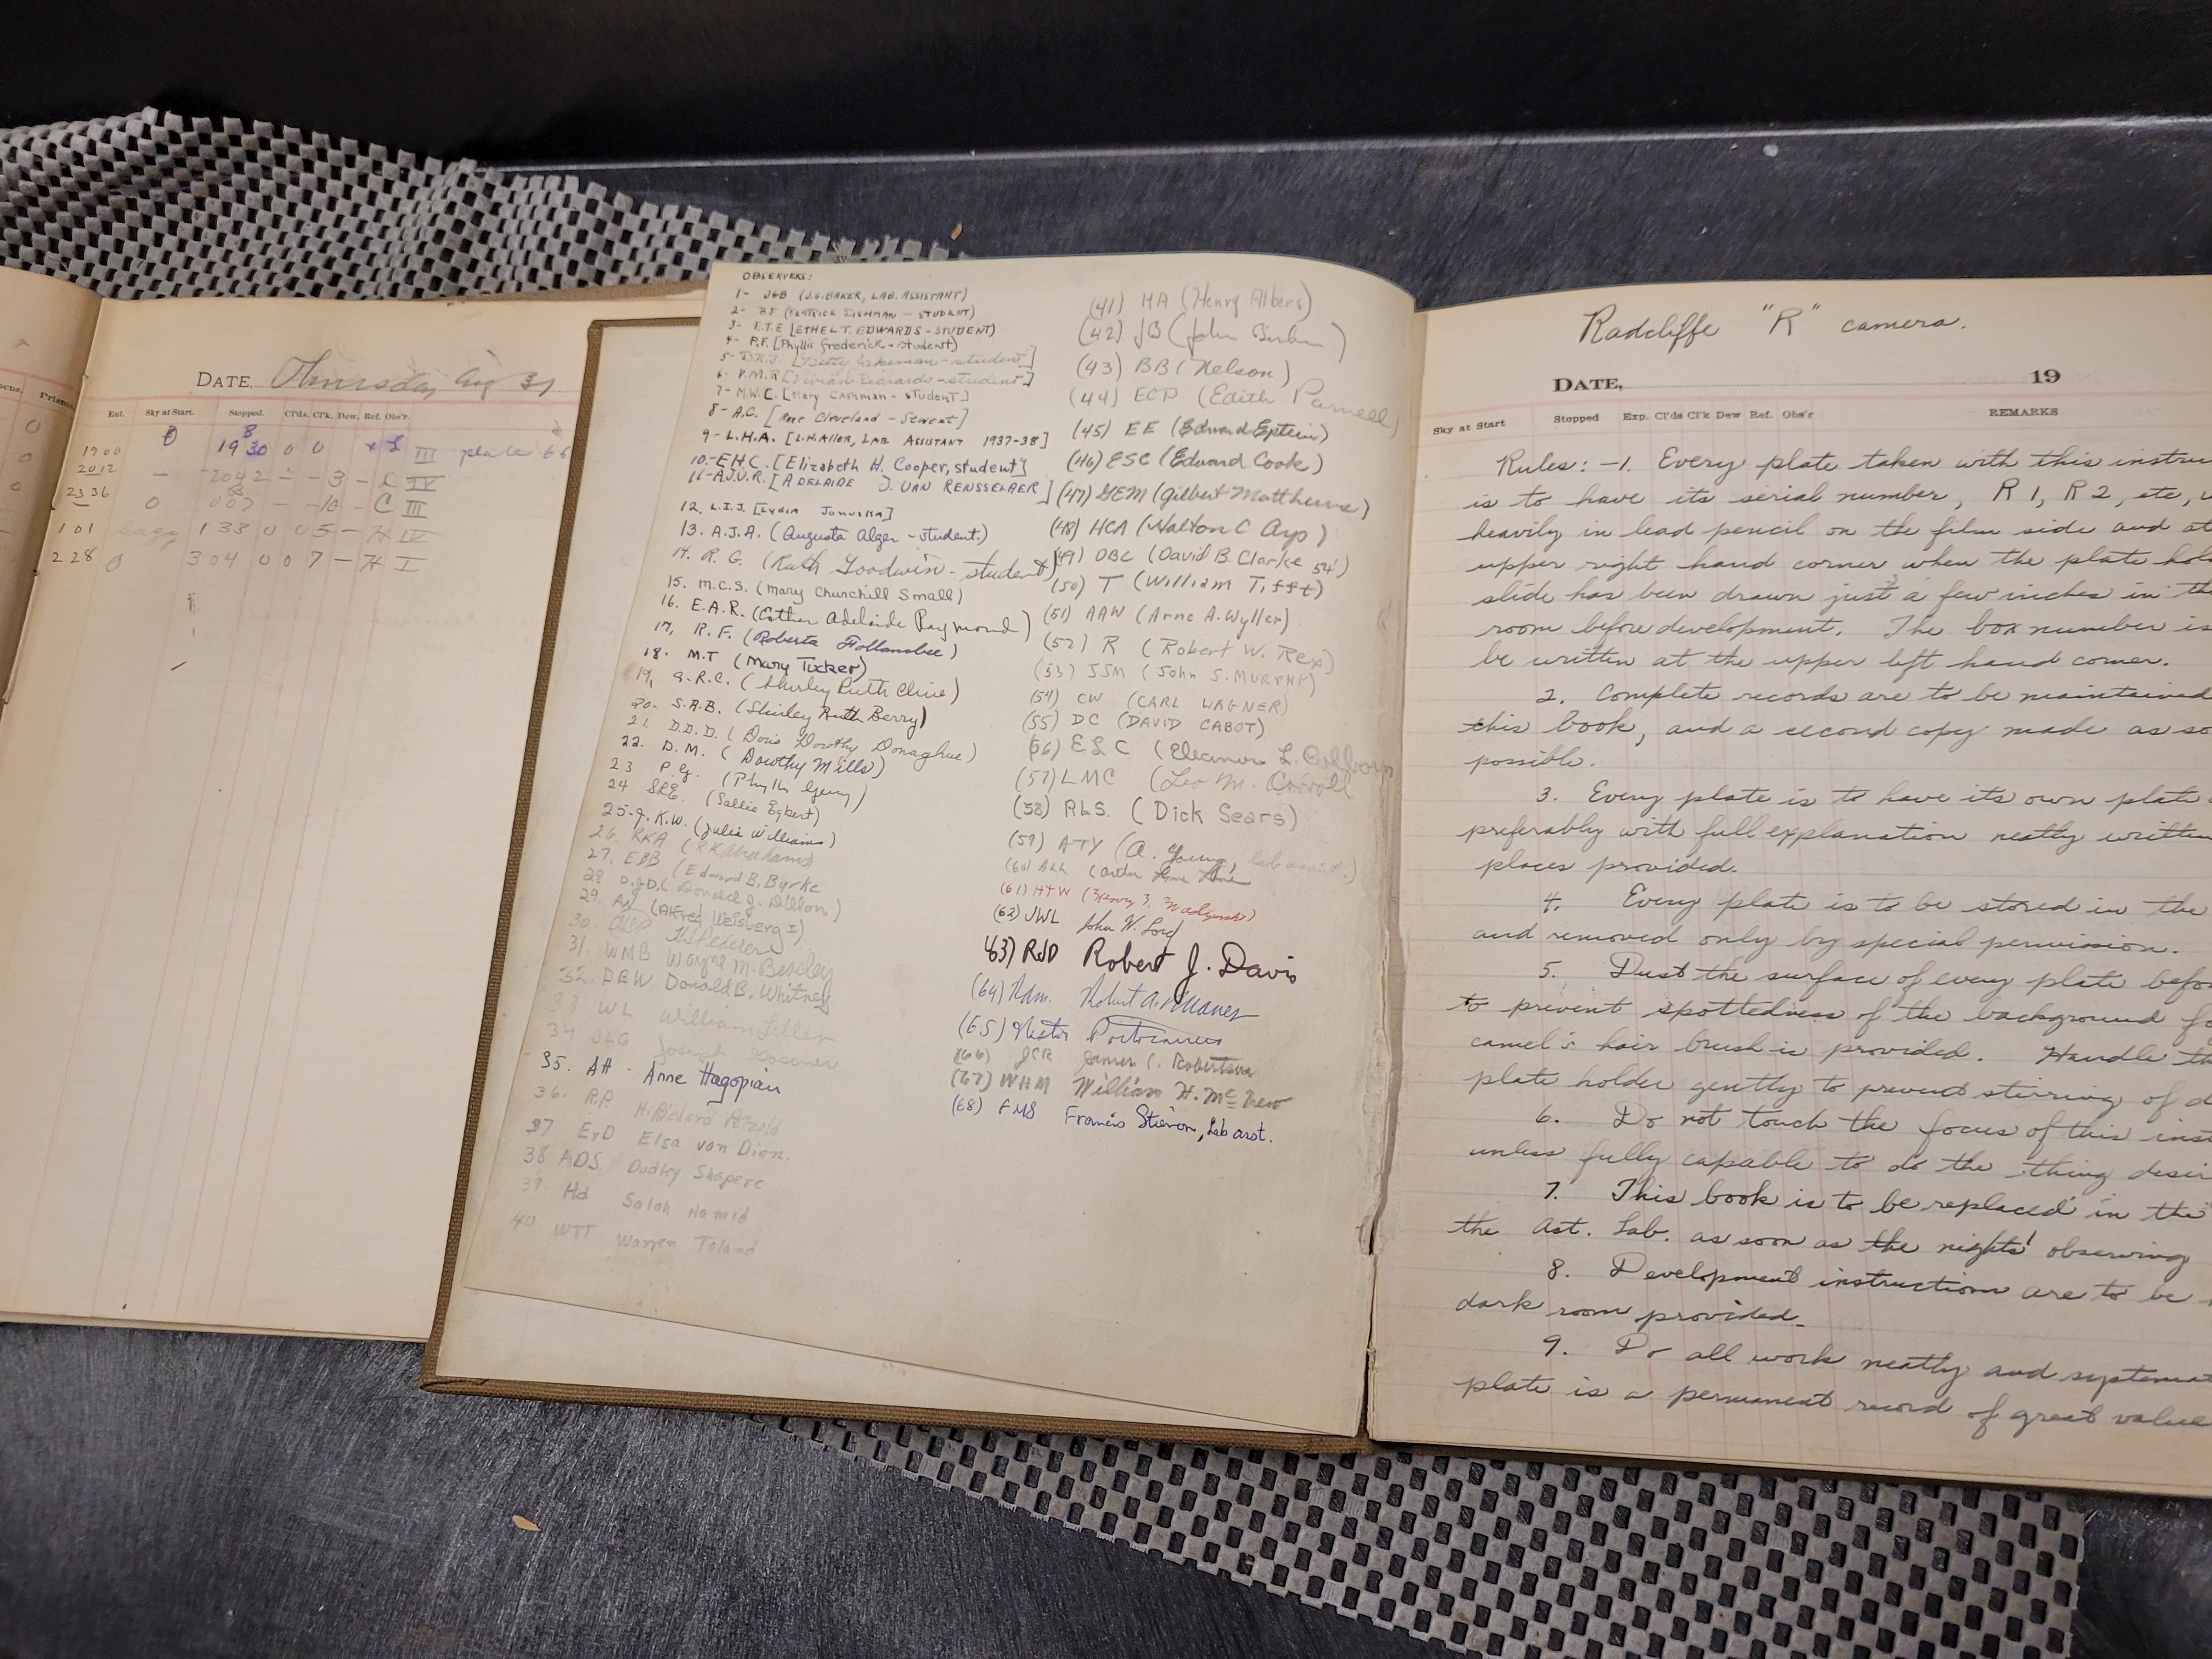 DATE, Thursday Aug 31
Ent. Sky at Start. Stopped. Cl'ds. Cl'k. Dew. Ref. Obs'r.
1900 0 1930 0 0 III plate 66
2012 — 2042 — — 3 — L IV
2336 0 007 — — 10 — C III
101 133 0 0 5 — H IV
228 0 304 0 0 7 — H I
OBSERVERS:
1- JGB (J.G. BAKER, LAB. ASSISTANT)
2- (- STUDENT)
3- E.T.E [ETHEL T. EDWARDS - STUDENT)
4- P.F. [Phyllis Frederick - student)
5- [Betty - student]
6- [Vivian Richards - student]
7- M.W.C. [Mary Cashman - STUDENT]
8- A.C. [Cleveland - Student]
9- L.H.A. [L.H. ALLER, LAB ASSISTANT 1937-38]
10.- E.H.C. [Elizabeth H. Cooper, student]
11- A.J.V.R. [ADELAIDE J. VAN RENSSELAER]
12. L.I.J. [Lydia]
13. A.J.A. (Augusta Alger - student.)
14. R. G. (Ruth Goodwin - student)
15. M.C.S. (Mary Churchill Small)
16. E.A.R. (Esther Adelaide Raymond)
17. R.F. (Roberta Follansbee)
18. M.T (Mary Tucker)
19. S.R.C. (Shirley Ruth Cline)
20- S.A.B. (Shirley Berry)
21. D.D.D. (Doris Dorothy Donaghue)
22. D.M. (Dorothy Mills)
23 P.G. (Phyllis)
24 SLE. (Sallie Egbert)
25- J.K.W. (Julia Williams)
26. RKA (RK Abrahams)
27. EBB (Edward B. Byrke
28 D.J.D. (Donald J. Dillon)
29. AW (Alfred Weisberg I)
30.
31. WMB Wayne M. Beasley
32. DBW Donald B. Whitney
33 WL William Liller
34 JLG Joseph
35. AH - Anne Hagopian
36. R.P H. Richard
37 EvD Elsa van Dien.
38 ADS. Dudley Shapere
39. Hd Salah Hamid
40 WTT Warren Toland
(41) HA (Henry Albers)
(42) JB (John)
(43) BB (Nelson)
(44) ECP (Edith Parnell)
(45) EE (Edward Eptein)
(46) ESC (Edward Cook)
(47) GEM (Gilbert Matthews)
(48) HCA (Halton C Arp)
(49) DBC (David B. Clarke 54')
(50) T (William Tifft)
(51) AAW (Arne A. Wyller)
(52) R (Robert W. Rex)
(53) JSM (John S. MURPHY)
(54) CW (CARL WAGNER)
(55) DC (DAVID CABOT)
(56) ELC (Eleanor L.)
(57) LMC (Leo M. Carroll
(58) RLS. (Dick Sears)
(59) ATY (A. Young, lab assist.)
(60)
(61) HTW (Henry)
(62) JWL John W. Lord
63) RJD Robert J. Davis
(64) Ram. Robert A.
(65) Nestor
(66) JCR James C. Robertson
(67) WHM William H. McNew
(68) FMS Francis, Lab asst.
Radcliffe "R" camera.
DATE, 19
Sky at Start Stopped Exp. Cl'ds Cl'k Dew Ref. Obs'r REMARKS
Rules: - 1. Every plate taken with this
is to have its serial number, R 1, R 2, etc,
heavily in lead pencil on the film side and at
upper right hand corner when the plate
slide has been drawn just a few inches in the
room before development. The box number is
be written at the upper left hand corner.
2. Complete records are to be maintained
this book, and a second copy made as
possible.
3. Every plate is to have its own plate
preferably with full explanation neatly written
places provided.
4. Every plate is to be stored in the
and removed only by special permission.
5. Dust the surface of every plate
to prevent spottedness of the background
camel's hair brush is provided. Handle
plate holder gently to prevent stirring of
6. Do not touch the focus of this
unless fully capable to do the thing
7. This book is to be replaced in the
the Ast. Lab. as soon as the nights' observing
8. Development instructions are to be
dark room provided.
9. Do all work neatly and
plate is a permanent record of great value